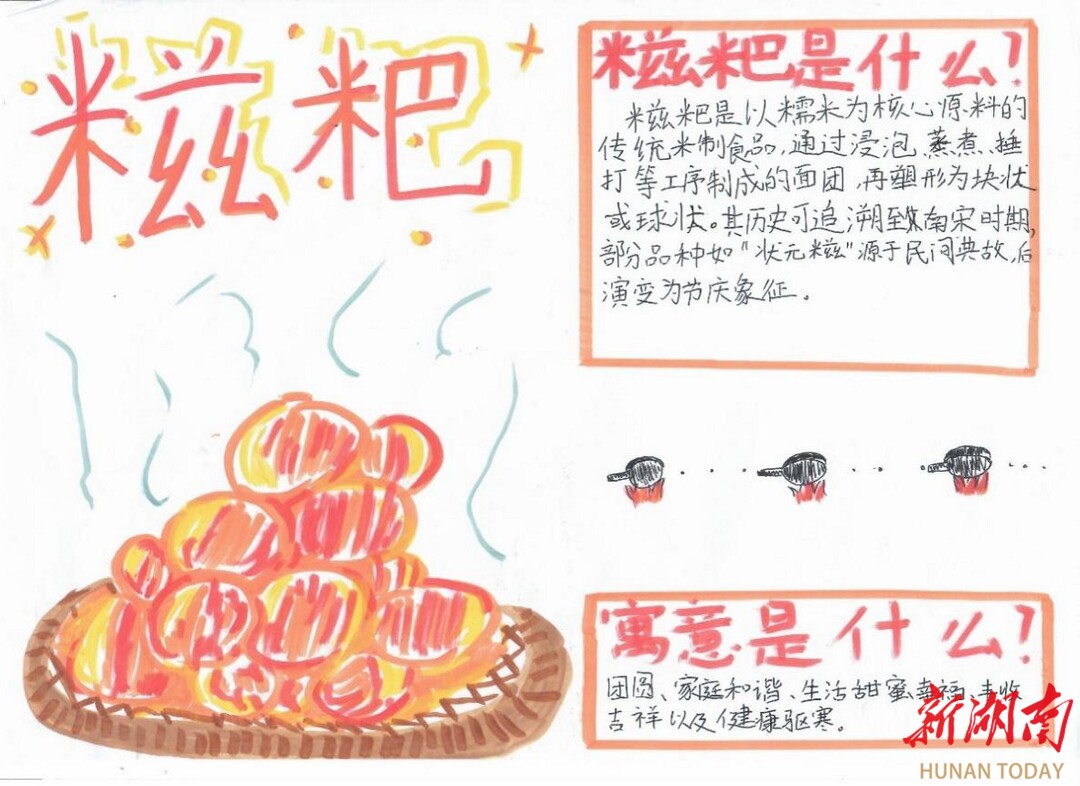 糍粑
糍粑是什么？
糍粑是以糯米为核心原料的
传统米制食品，通过浸泡、蒸煮、捶
打等工序制成的面团，再塑形为块状
或球状。其历史可追溯至南宋时期，
部分品种如“状元糍”源于民间典故，后
演变为节庆象征。
寓意是什么？
团圆、家庭和谐、生活甜蜜幸福、丰收
吉祥以及健康驱寒。
新湖南
HUNAN TODAY